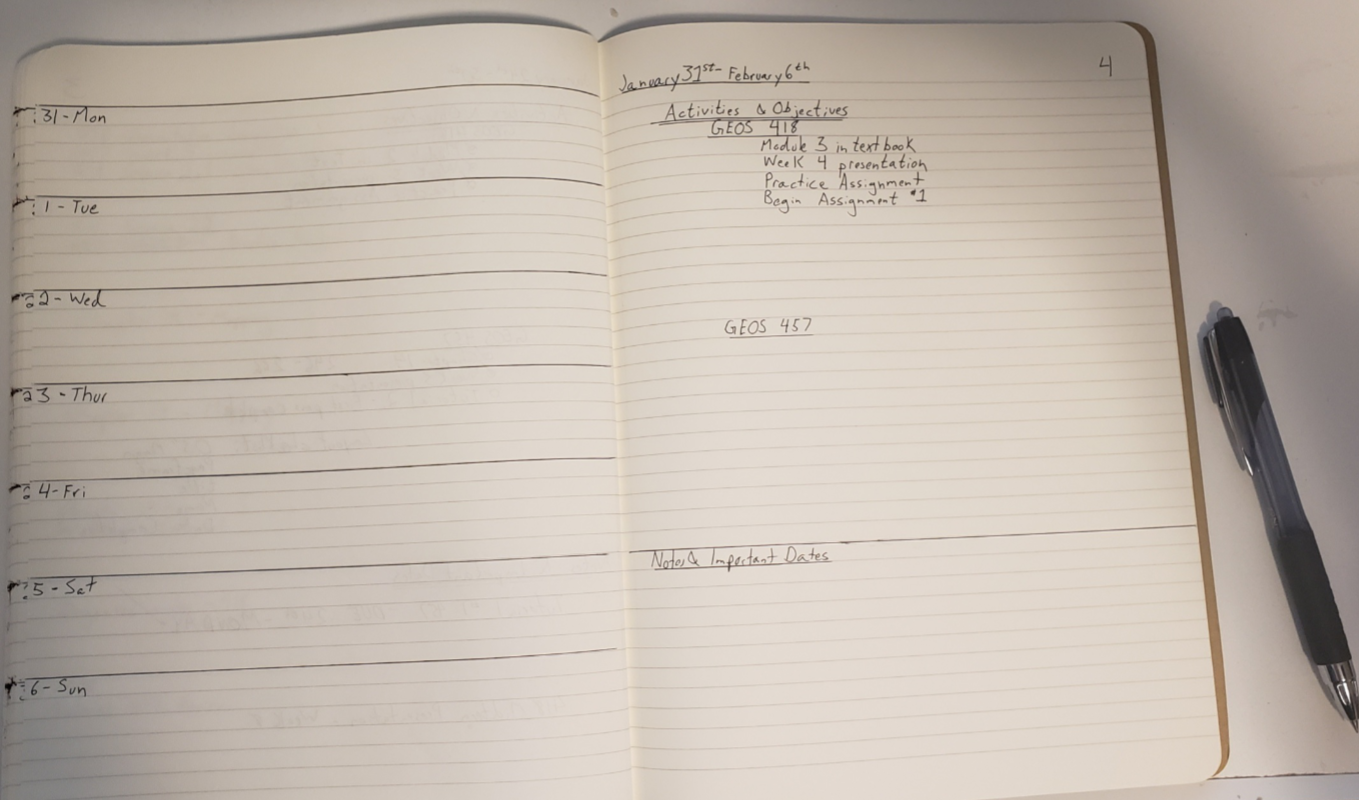 31-Mon
1-Tue
2-Wed
3-Thur
4-Fri
5-Sat
6-Sun
4
January 31st- February 6th
Activities & Objectives
GEOS 418
Module 3 in textbook
Week 4 presentation
Practice Assignment
Begin Assignment #1
GEOS 457
Notes & Important Dates